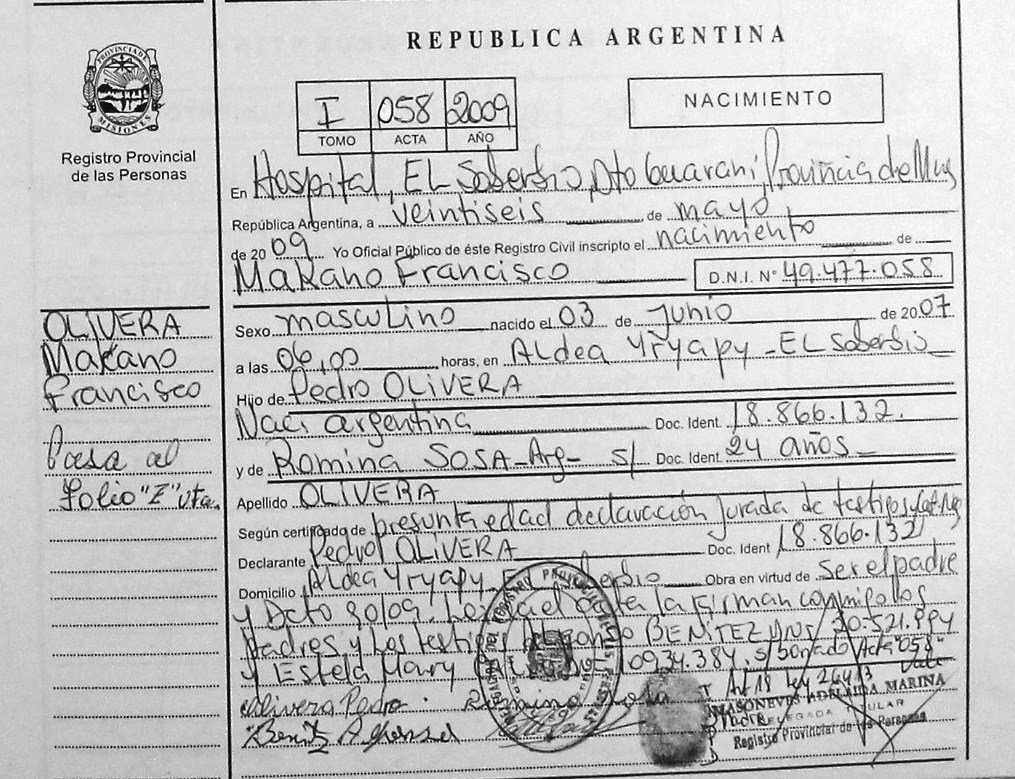 REPUBLICA ARGENTINA
PROVINCIA DE MISIONES
Registro Provincial
de las Personas
I 058 2009
TOMO ACTA AÑO
NACIMIENTO
En Hospital, EL Soberbio, Dto Guarani, Provincia de Mns
República Argentina, a veintiseis de mayo
de 2009 Yo Oficial Público de éste Registro Civil inscripto el nacimiento de
Makano Francisco D.N.I. N° 49.477.058
Sexo masculino nacido el 03 de Junio de 2007
a las 06,00 horas, en Aldea Yryapy - EL Soberbio
Hijo de Pedro OLIVERA
Naci argentina Doc. Ident. 18.866.132.
y de Romina SOSA - Arg - s/ Doc. Ident. 24 años
Apellido OLIVERA
Según certificado de presunta edad declaración jurada de testigos
Declarante Pedro OLIVERA Doc. Ident 18.866.132
Domicilio Aldea Yryapy Obra en virtud de ser el padre
y Dcto la firman conmigo los
Padres y los testigos BENITEZ DNI 30.521.994
y Estela Mary s/ borrado Acta "058"
Vale
Art 18 Ley 26413
Olivera Pedro. Romina
MASONEVES ADELAIDA MARINA
DELEGADA TITULAR
Registro Provincial de las Personas
Padre
OLIVERA
Makano
Francisco
Pasa al
Folio "Z" vta.